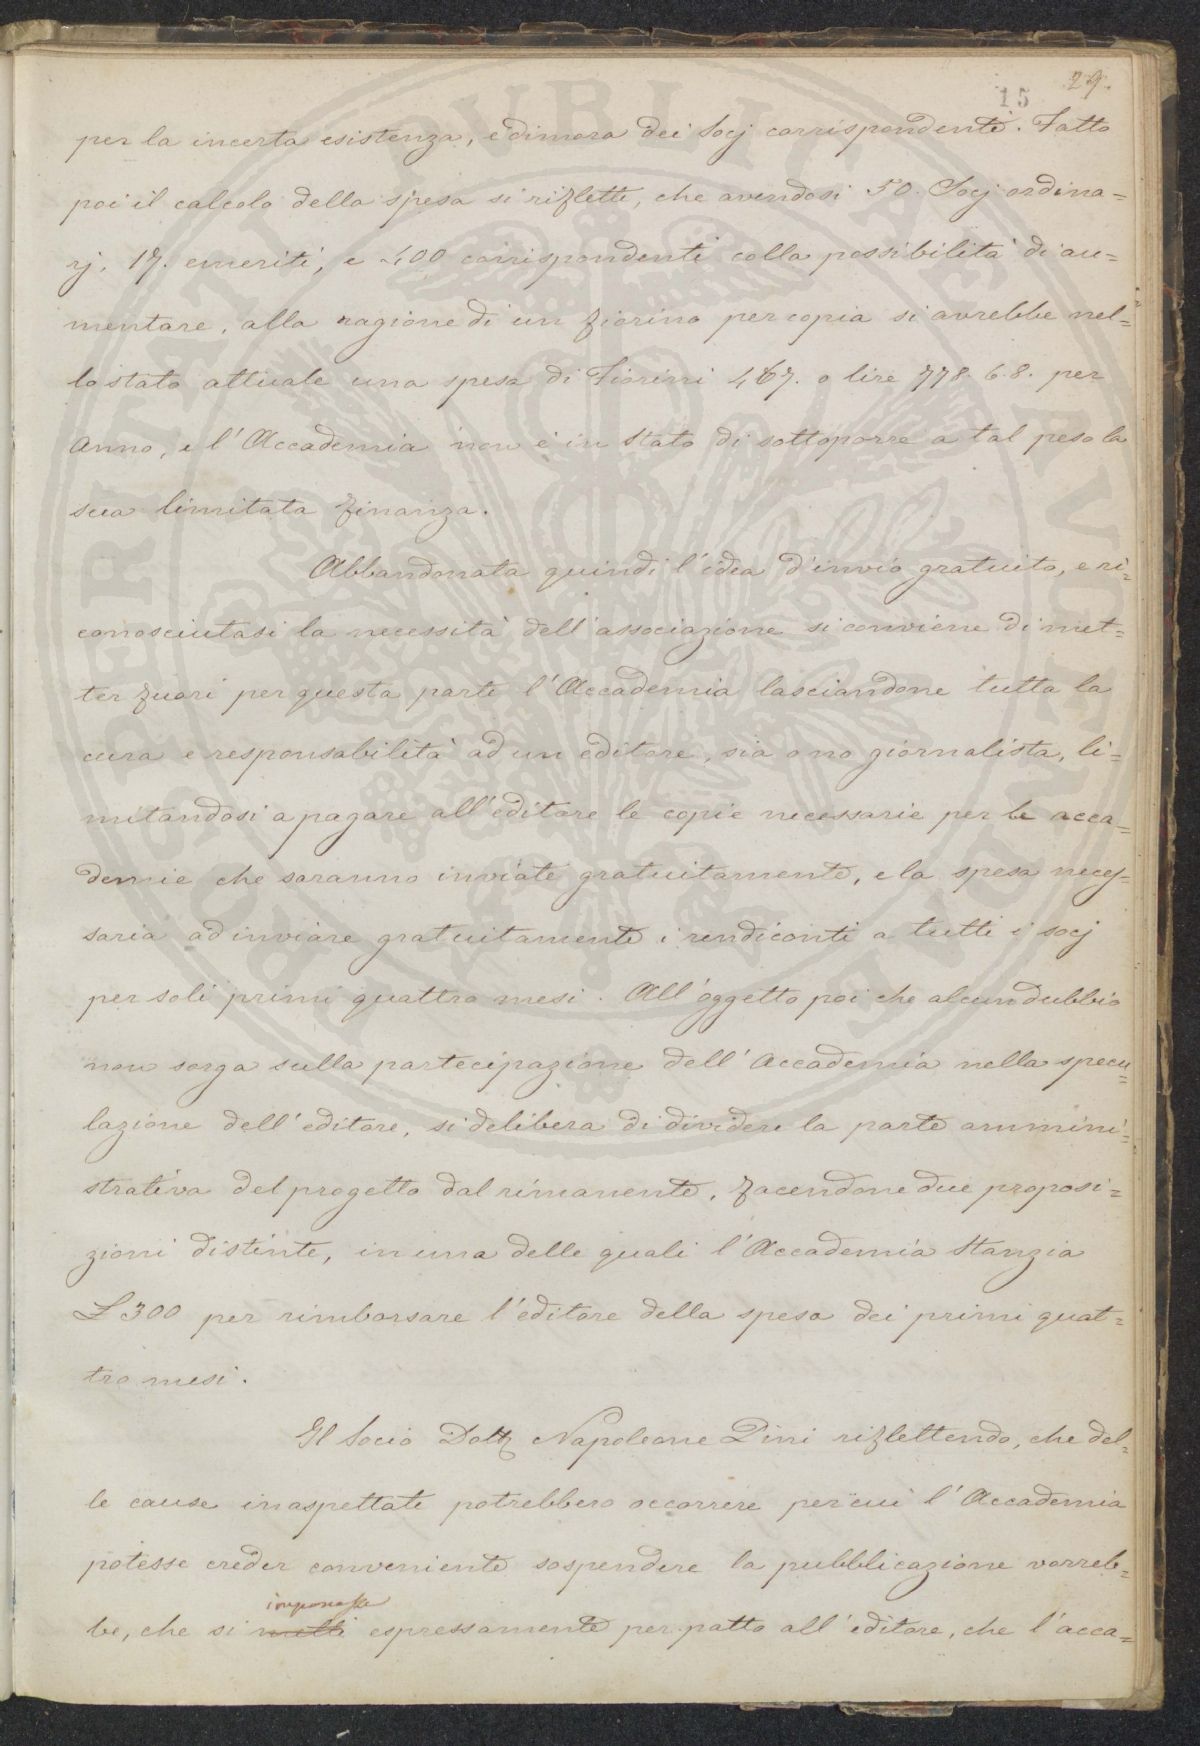 29.
15
per la incerta esistenza, e dimora dei Socj corrispondenti. Fatto
poi il calcolo della spesa si riflette, che avendosi 50. Socj ordina=
rj, 17. emeriti, e 400 corrispondenti colla possibilità di au=
mentare, alla ragione di un fiorino per copia si avrebbe nel=
lo stato attuale una spesa di Fiorini 467. o lire 778. 6. 8. per
anno, e l'Accademia non è in stato di sottoporre a tal peso la
sua limitata finanza.
Abbandonata quindi l'idea d'invio gratuito, e ri=
conosciutasi la necessità dell'associazione si conviene di met=
ter fuori per questa parte l'Accademia lasciandone tutta la
cura e responsabilità ad un editore, sia o no giornalista, li=
mitandosi a pagare all'editore le copie necessarie per le acca=
demie che saranno inviate gratuitamente, e la spesa neces=
saria ad inviare gratuitamente i rendiconti a tutti i socj
per soli primi quattro mesi. All'oggetto poi che alcun dubbio
non sorga sulla partecipazione dell'Accademia nella specu=
lazione dell'editore, si delibera di dividere la parte ammini=
strativa del progetto dal rimanente, facendone due proposi=
zioni distinte, in una delle quali l'Accademia stanzia
£ 300 per rimborsare l'editore della spesa dei primi quat=
tro mesi.
Il Socio Dott. Napoleone Pini riflettendo, che del=
le cause inaspettate potrebbero occorrere per cui l'Accademia
potesse creder conveniente sospendere la pubblicazione vorreb=
imponesse
be, che si metti espressamente per patto all'editore, che l'acca=
PROSPERITATI PVBLICAE AVGENDAE